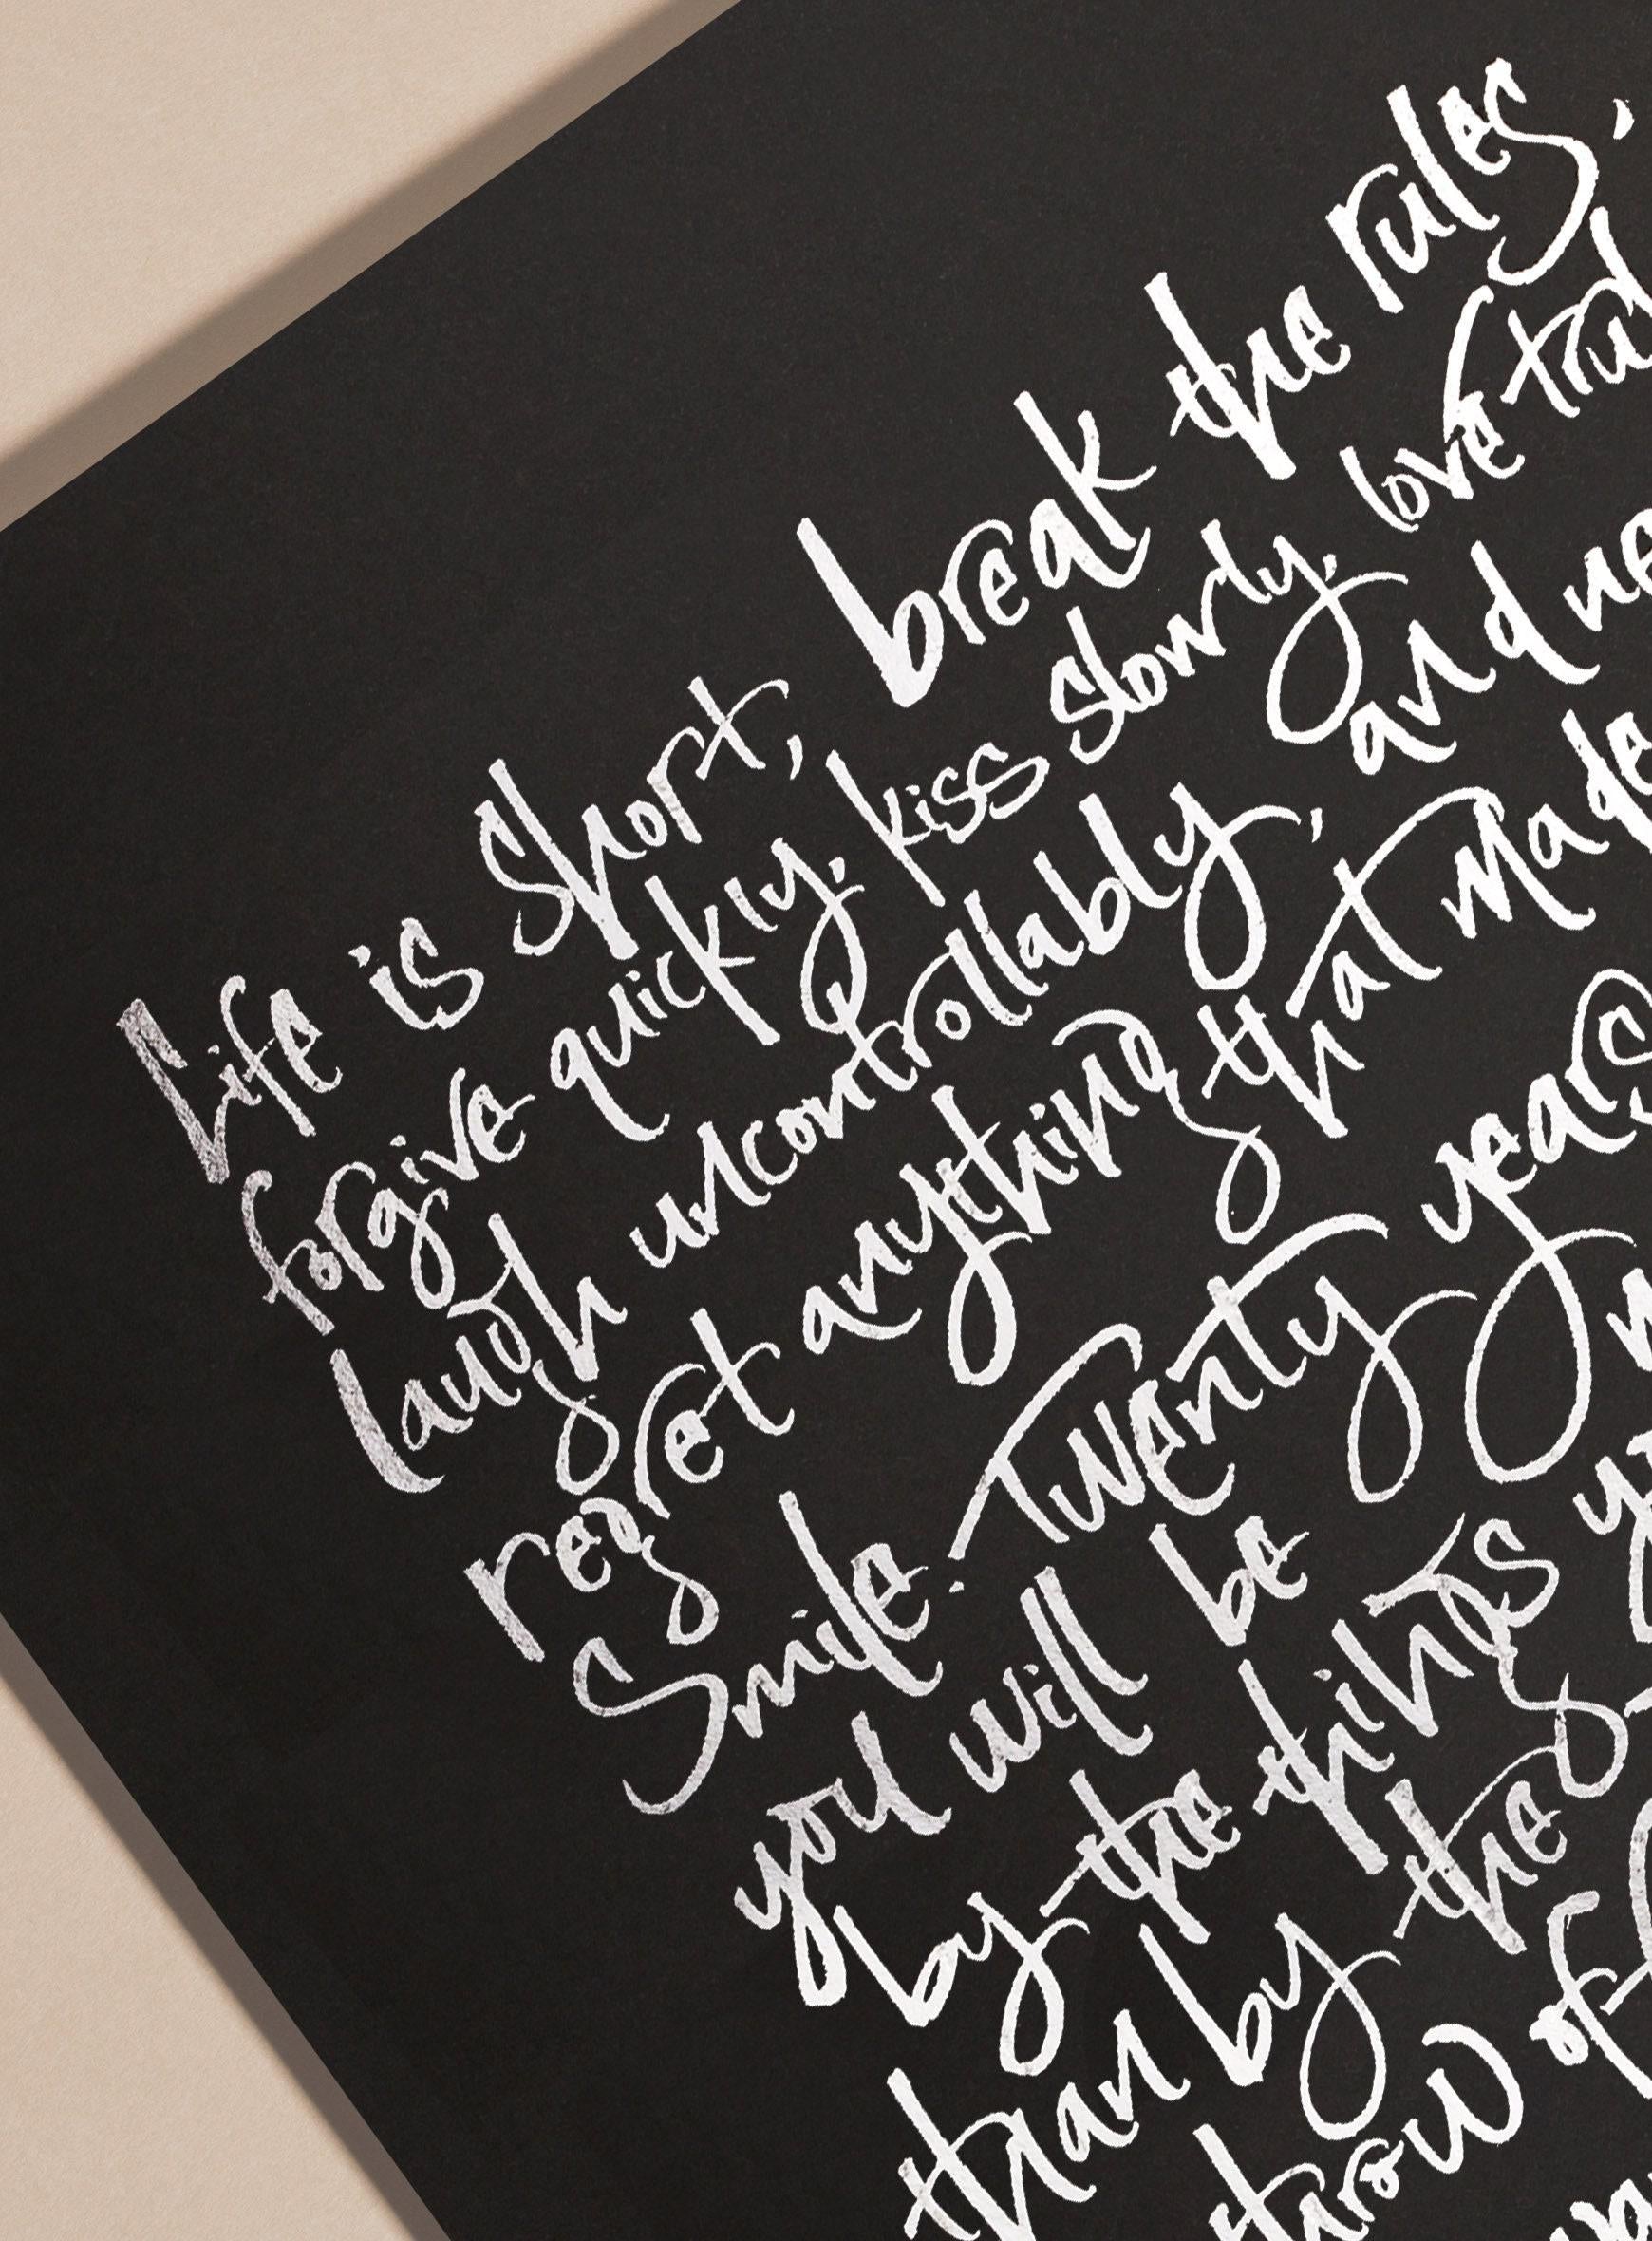 Life is short, break the rules,
forgive quickly, kiss slowly, love trul
laugh uncontrollably, and ne
regret anything that made
Smile. Twenty years
you will be
by the things y
than by the
throw off